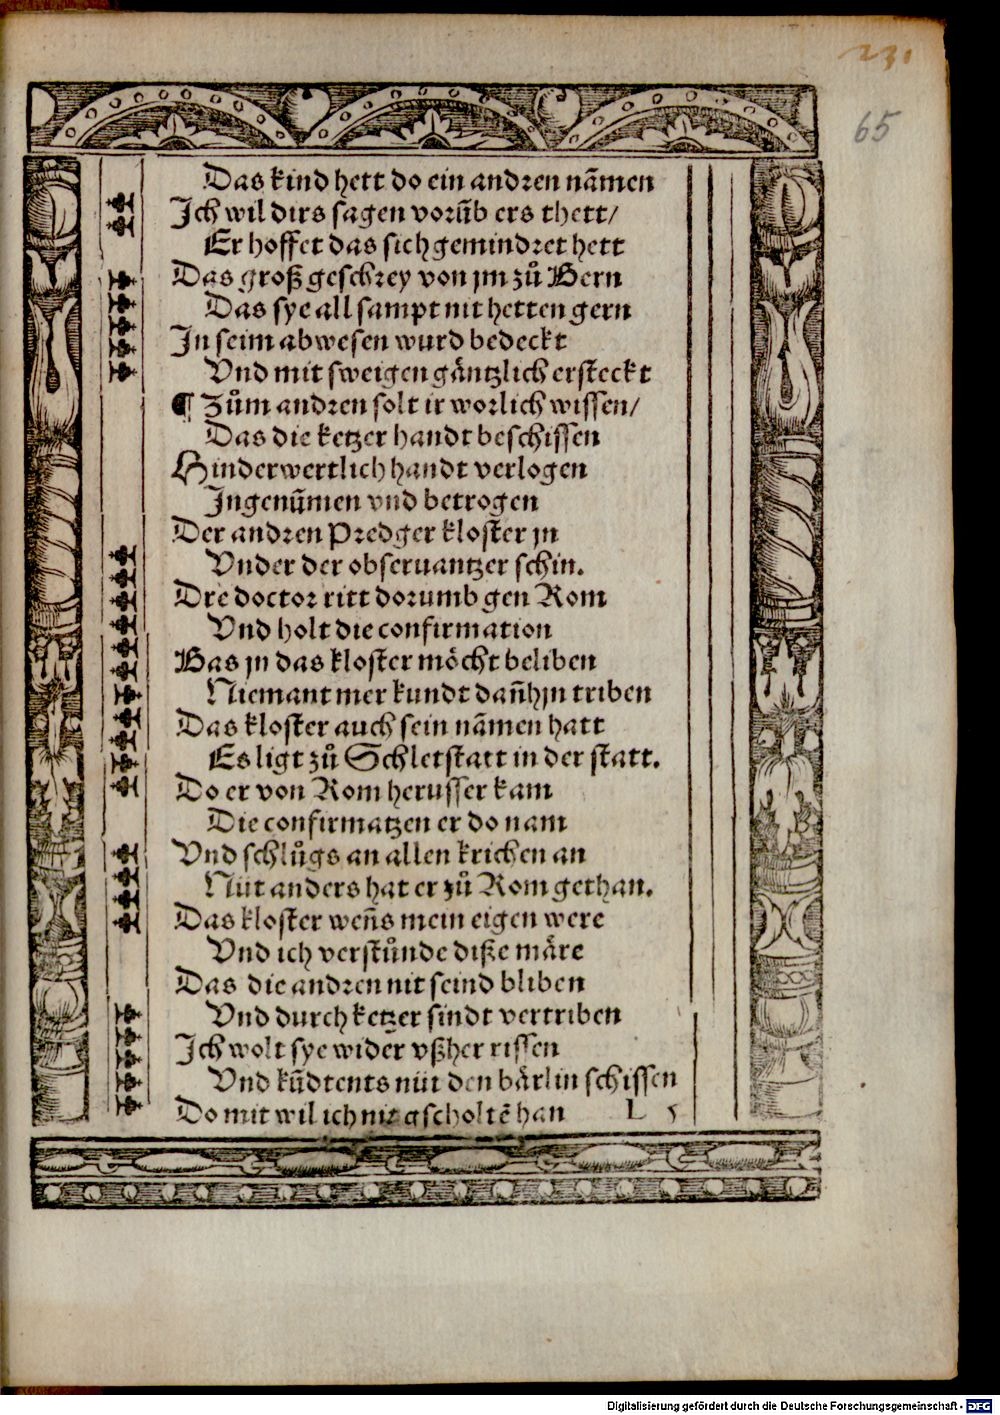 231
65
Das kind hett do ein andren nāmen
Jch wil dirs sagen vorūb ers thett/
Er hoffet das sich gemindret hett
Das groß geschrey von jm zů Bern
Das sye all sampt nit hetten gern
Jn seim abwesen wurd bedeckt
Vnd mit sweigen gäntzlich ersteckt
¶ Zům andren solt ir worlich wissen/
Das die ketzer handt beschissen
Hinderwertlich handt verlogen
Jngenūmen vnd betrogen
Der andren Predger kloster jn
Vnder der obseruantzer schin.
Dre doctor ritt dorumb gen Rom
Vnd holt die confirmation
Bas jn das kloster möcht beliben
Niemant mer kundt dañ hjn triben
Das kloster auch sein nāmen hatt
Es ligt zů Schletstatt in der statt.
Do er von Rom herusser kam
Die confirmatzen er do nam
Vnd schlůgs an allen krichen an
Nüt anders hat er zů Rom gethan.
Das kloster weñs mein eigen were
Vnd ich verstůnde diße märe
Das die andren nit seind bliben
Vnd durch ketzer sindt vertriben
Jch wolt sye wider vßher rissen
Vnd kūdtents nüt den bärlin schissen
Do mit wil ich nit gscholtē han L 5
Digitalisierung gefördert durch die Deutsche Forschungsgemeinschaft - DFG